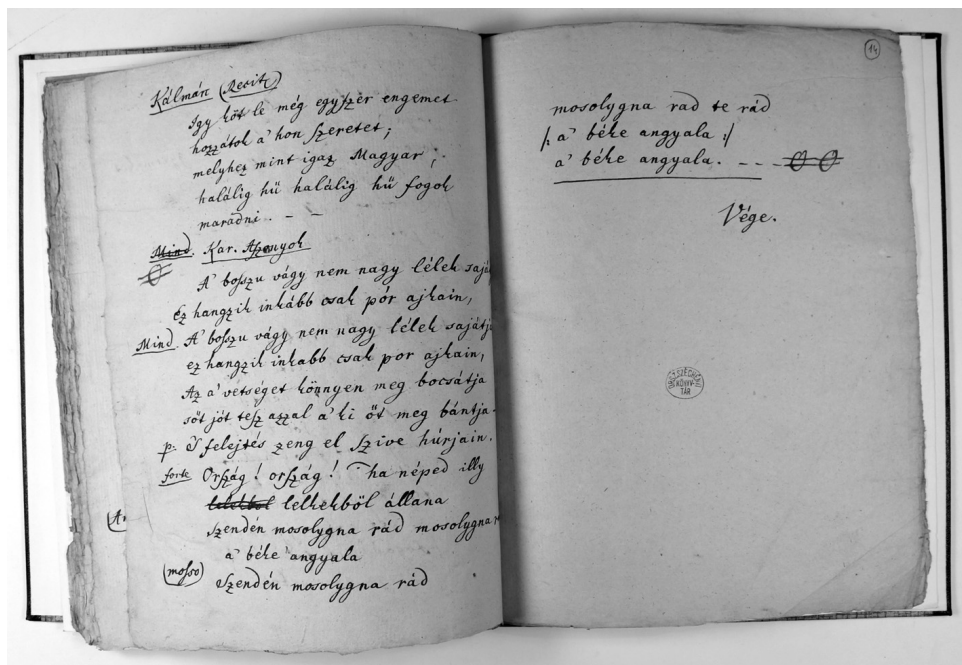 Kálmán (Recit)
Igy köt le még egyszer engemet
hozzátok a' hon szeretet;
melyhez mint igaz Magyar,
halálig hű halálig hű fogok
maradni. - -
Mind. Kar. Aszonyok
A' boszu vágy nem nagy lélek sajá
ez hangzik inkább csak pór ajkain,
Mind. A' boszu vágy nem nagy lélek sajátj
ez hangzik inkabb csak por ajkain,
Az a' vétséget könnyen meg bocsátja
sőt jót tesz azzal a' ki őt meg bántja.
p. S felejtés zeng el szive húrjain.
forte Ország! ország! ha néped illy
lelkekböl állana
szendén mosolygna rád mosolygna
a' béke angyala
(mosso) Szendén mosolygna rád
14
mosolygna rad te rád
/: a' béke angyala :/
a' béke angyala. - - -
Vége.
ORSZ. SZÉCHÉNYI
KÖNYV-
TÁR